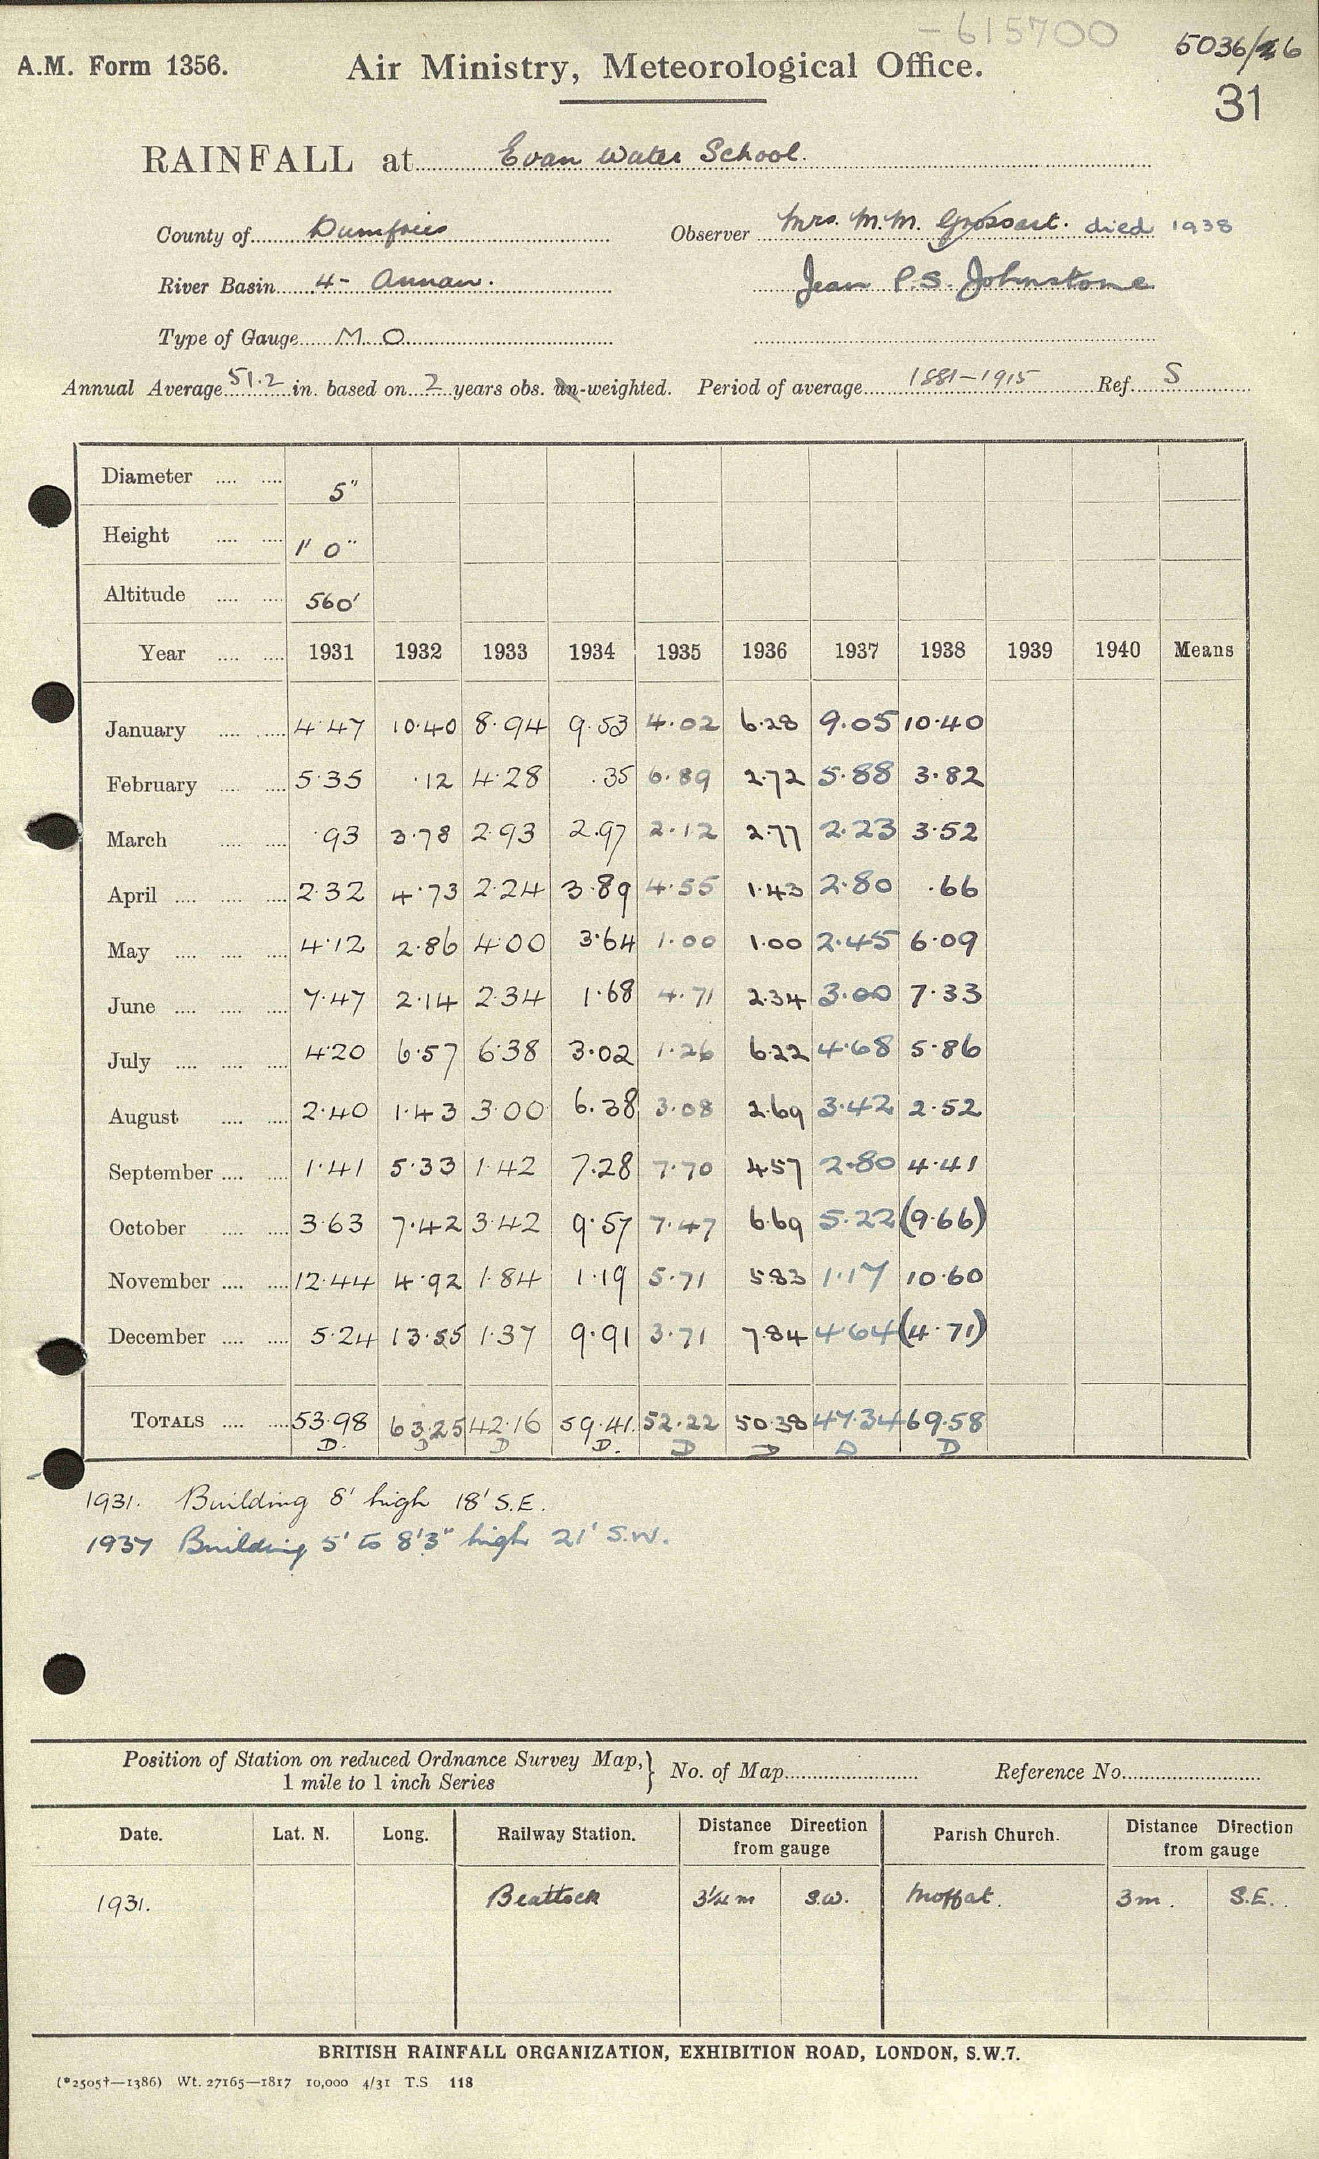 - 615700
5036/26
A.M. Form 1356.
Air Ministry, Meteorological Office.
31
RAINFALL at Evan Water School.
County of Dumfries
Observer Mrs. M.M. Grossart. died 1938
River Basin 4 - Annan.
Jean P.S. Johnstone
Type of Gauge M O
Annual Average 51.2 in. based on 2 years obs. un-weighted. Period of average 1881-1915 Ref. S
Diameter .... .... 5"
Height .... .... 1' 0"
Altitude .... .... 560'
Year .... .... 1931 1932 1933 1934 1935 1936 1937 1938 1939 1940 Means
January .... .... 4.47 10.40 8.94 9.53 4.02 6.28 9.05 10.40
February .... .... 5.35 .12 4.28 .35 6.89 2.72 5.88 3.82
March .... .... .93 3.78 2.93 2.97 2.12 2.77 2.23 3.52
April .... .... .... 2.32 4.73 2.24 3.89 4.55 1.43 2.80 .66
May .... .... .... 4.12 2.86 4.00 3.64 1.00 1.00 2.45 6.09
June .... .... .... 7.47 2.14 2.34 1.68 4.71 2.34 3.00 7.33
July .... .... .... 4.20 6.57 6.38 3.02 1.26 6.22 4.68 5.86
August .... .... 2.40 1.43 3.00 6.38 3.08 2.69 3.42 2.52
September .... .... 1.41 5.33 1.42 7.28 7.70 4.57 2.80 4.41
October .... .... 3.63 7.42 3.42 9.57 7.47 6.69 5.22 (9.66)
November .... .... 12.44 4.92 1.84 1.19 5.71 5.83 1.17 10.60
December .... .... 5.24 13.55 1.37 9.91 3.71 7.84 4.64 (4.71)
TOTALS .... .... 53.98 63.25 42.16 59.41. 52.22 50.38 47.34 69.58
D. D D D. D D D D
1931. Building 8' high 18' S.E.
1937 Building 5' to 8'3" high 21' S.W.
Position of Station on reduced Ordnance Survey Map, } No. of Map Reference No.
1 mile to 1 inch Series
Date. Lat. N. Long. Railway Station. Distance Direction Parish Church. Distance Direction
from gauge from gauge
1931. Beattock 3¼ m S.W. Moffat. 3 m. S.E.
BRITISH RAINFALL ORGANIZATION, EXHIBITION ROAD, LONDON, S.W.7.
(*2505†—1386) Wt. 27165—1817 10,000 4/31 T.S 118